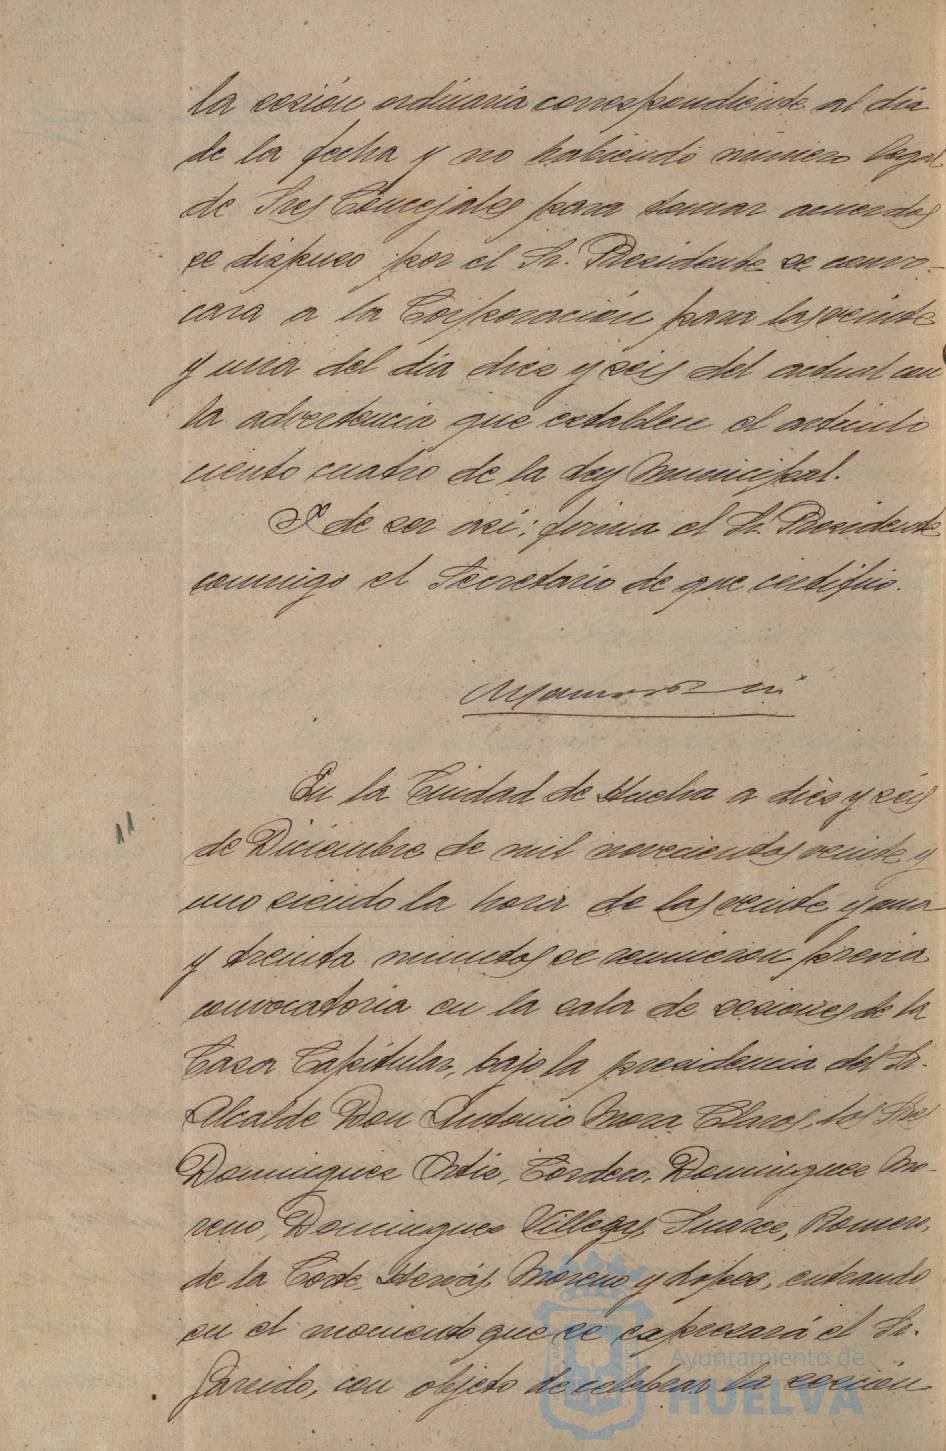 la sesión ordinaria correspondiente al dia
de la fecha y no habiendo número legal
de Sres Concejales para tomar acuerdos
se dispuso por el Sr. Presidente se convo-
cara a la Corporación para las veinte
y una del dia diez y seis del actual con
la advertencia que establece el artículo
ciento cuatro de la Ley Municipal.
Y de ser así; firma el Sr. Presidente
conmigo el Secretario de que certifico.
En la Ciudad de Huelva a diez y seis
de Diciembre de mil novecientos veinte y
uno siendo la hora de las veinte y una
y treinta minutos se reunieron previa
convocatoria en la sala de sesiones de la
Casa Capitular, bajo la presidencia del Sr.
Alcalde Don Antonio Mora Claros, los Sres
Dominguez Ortiz, Cordero, Dominguez Mo-
reno, Dominguez Villegas, Suarez, Romero,
de la Corte, Hervás, Moreno y López, entrando
en el momento que se expresará el Sr.
Garrido, con objeto de celebrar la sesión
Ayuntamiento de
HUELVA